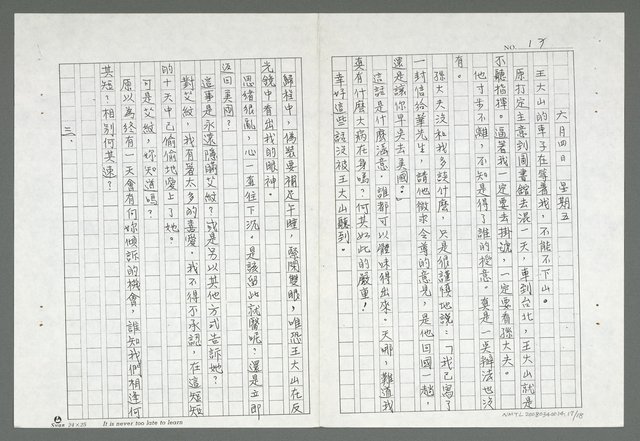 NO. 17
六月四日　星期五
王大山的車子在等著我，不能不下山。
原打定主意到圖書館去混一天，車到台北，王大山就是
不聽指揮。逼著我一定要去掛號，一定要看孫大夫。
他寸步不離，不知是得了誰的授意。真是一點辦法也沒
有。
孫大夫沒和我多談什麼，只是很謹慎地說：「我已寫了
一封信給華先生，請他徵求令尊的意見，是他回國一趟，
還是讓你早些去美國。」
這話是什麼涵意，誰都可以體味得出來。天哪，難道我
真有什麼大病在身嗎？何其如此的嚴重！
幸好這些話沒被王大山聽到。
歸程中，偽裝要補足午睡，緊閉雙眼，唯恐王大山在反
光鏡中看出我的眼神。
思緒很亂，心一直往下沉。是該留此就醫呢？還是立即
返回美國？
這事是永遠隱瞞艾紋？或是另以其他方式告訴她？
對艾紋，我有著太多的喜愛。我不得不承認，在這短短
的十天中已偷偷地愛上了她。
可是艾紋，妳知道嗎？
原以為終有一天會有向妳傾訴的機會，誰知我們相逢何
其短？相別何其速？
三、
Swan 24×25
It is never too late to learn
NMTL20080540014-17/18